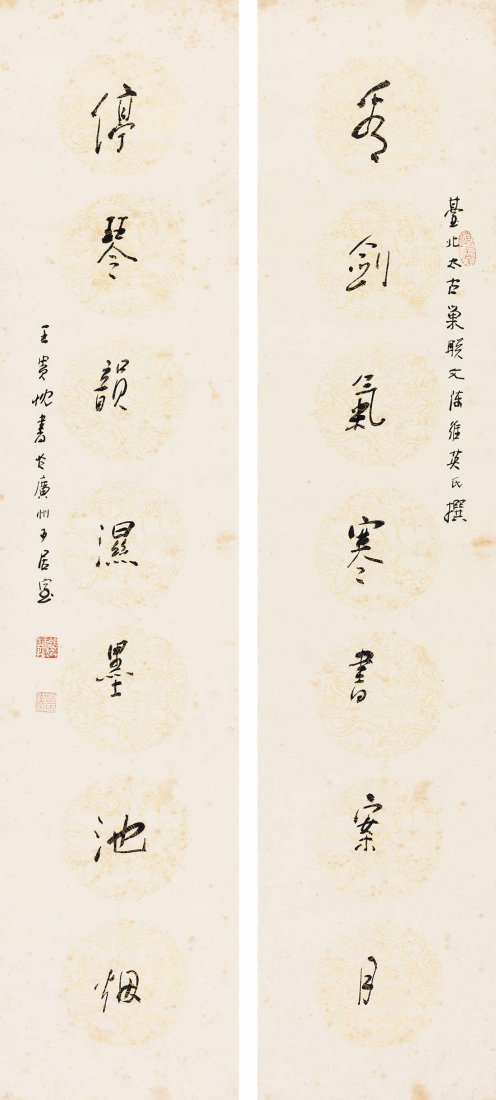 臺北太古巢聯文陳維英氏撰
看劍氣寒書案月
停琴韻濕墨池烟
王貴忱書於廣州可居室